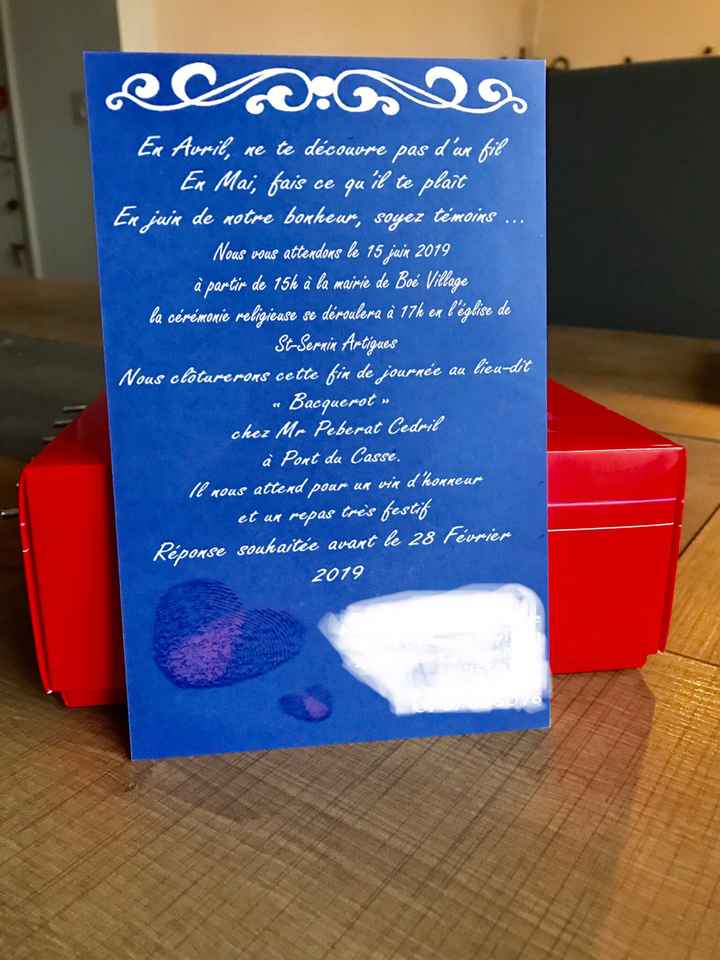 En Avril, ne te découvre pas d'un fil
En Mai, fais ce qu'il te plaît
En juin de notre bonheur, soyez témoins ...
Nous vous attendons le 15 juin 2019
à partir de 15h à la mairie de Boé Village
la cérémonie religieuse se déroulera à 17h en l'église de
St-Sernin Artigues
Nous clôturerons cette fin de journée au lieu-dit
« Bacquerot »
chez Mr Peberat Cedril
à Pont du Casse.
Il nous attend pour un vin d'honneur
et un repas très festif
Réponse souhaitée avant le 28 Février
2019